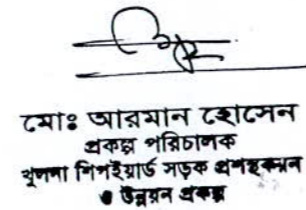 মোঃ আরমান হোসেন
প্রকল্প পরিচালক
খুলনা শিপইয়ার্ড সড়ক প্রশস্তকরন
ও উন্নয়ন প্রকল্প